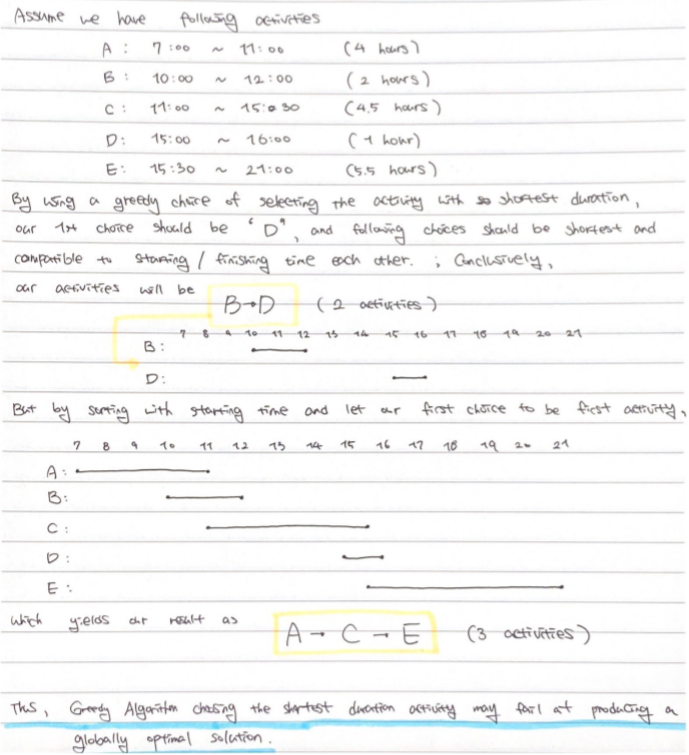 Assume we have following activities
A : 7:00 ~ 11:00 (4 hours)
B : 10:00 ~ 12:00 (2 hours)
C : 11:00 ~ 15:30 (4.5 hours)
D : 15:00 ~ 16:00 (1 hour)
E : 15:30 ~ 21:00 (5.5 hours)
By using a greedy choice of selecting the activity with shortest duration,
our 1st choice should be "D", and following choices should be shortest and
compatible to starting / finishing time each other. ; Conclusively,
our activities will be B→D (2 activities)
7 8 9 10 11 12 13 14 15 16 17 18 19 20 21
B :
D :
But by sorting with starting time and let our first choice to be first activity,
7 8 9 10 11 12 13 14 15 16 17 18 19 20 21
A :
B :
C :
D :
E :
which yields our result as A → C → E (3 activities)
Thus, Greedy Algorithm chosing the shortest duration activity may fail at producing a
globally optimal solution.